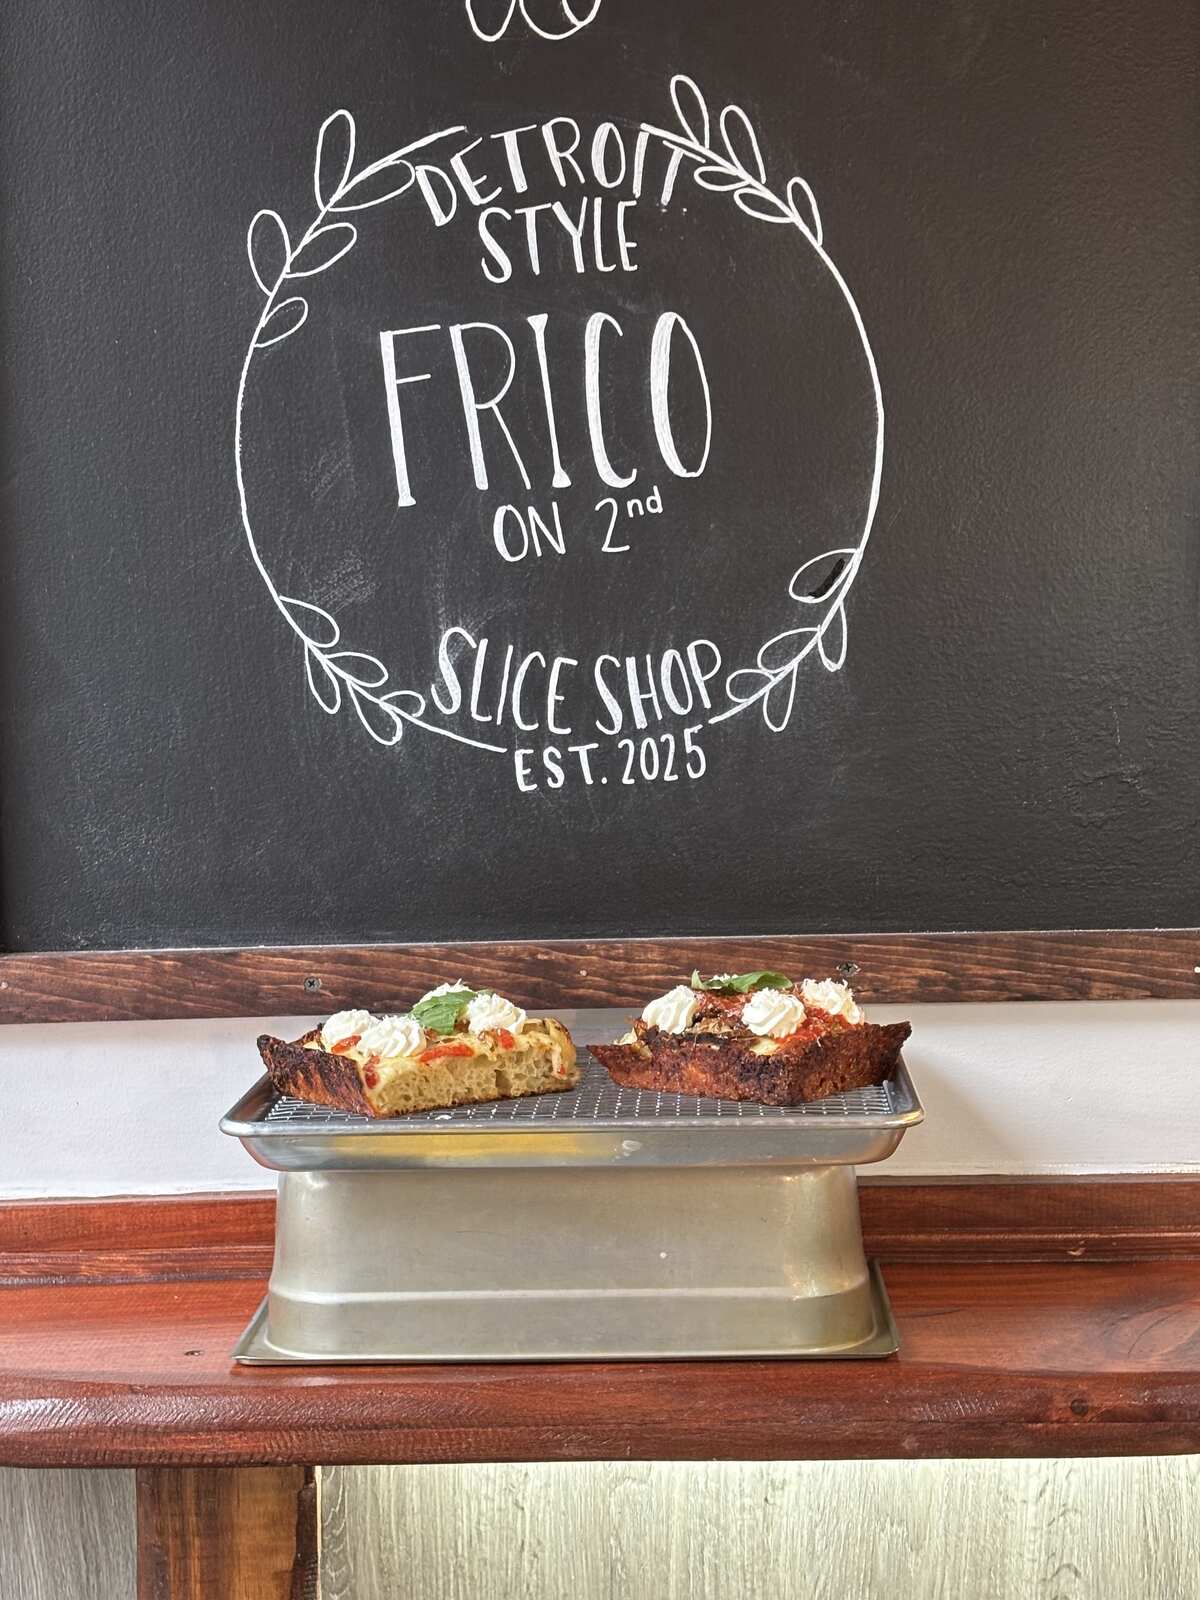 DETROIT
STYLE
FRICO
ON 2nd
SLICE SHOP
EST. 2025